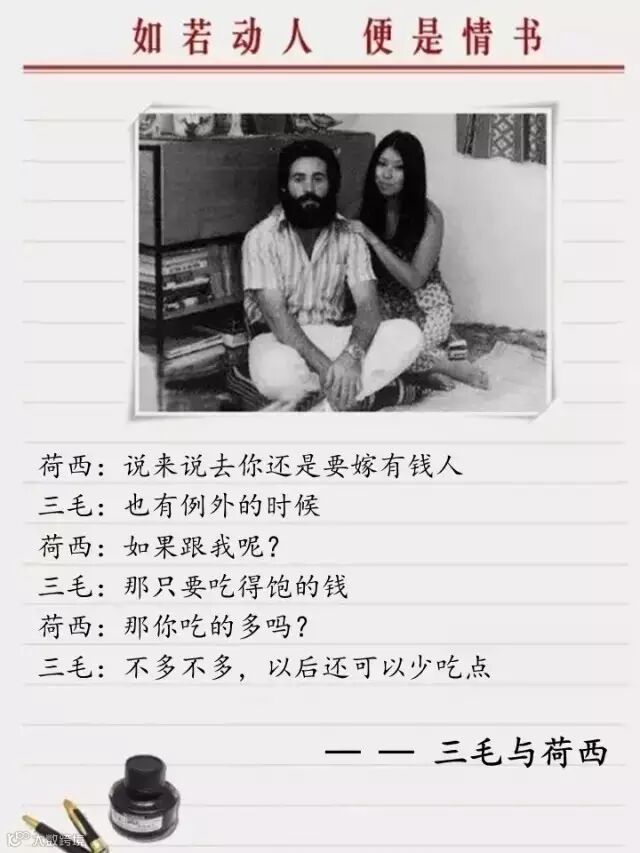 如若动人 便是情书
荷西：说来说去你还是要嫁有钱人
三毛：也有例外的时候
荷西：如果跟我呢？
三毛：那只要吃得饱的钱
荷西：那你吃的多吗？
三毛：不多不多，以后还可以少吃点
— — 三毛与荷西
大数跨境